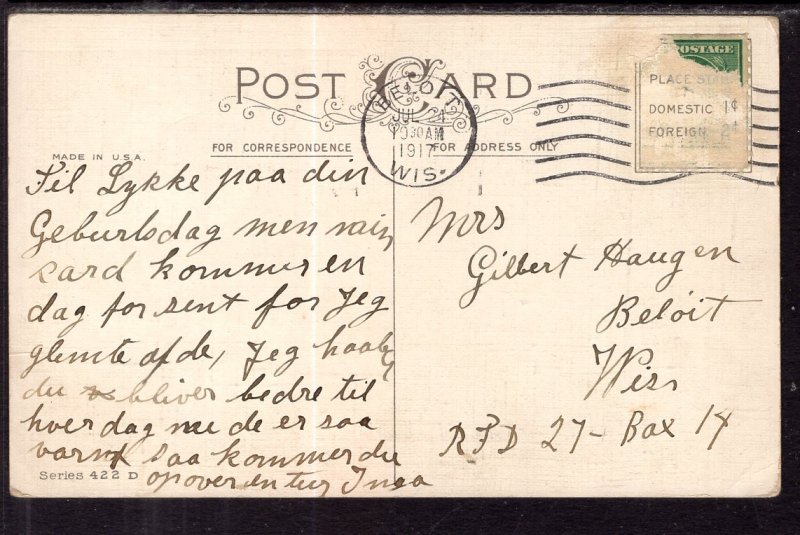 POST CARD
BELOIT
JUL 24
1030AM
1917
WIS.
POSTAGE
DOMESTIC 1¢
FOREIGN 2¢
FOR CORRESPONDENCE
FOR ADDRESS ONLY
MADE IN U.S.A.
Til Lykke paa din
Geburlsdag men
card kommer en
dag for sent for Jeg
glemte afde, Jeg haaber
du bliver bedre til
hver dag nu de er saa
varmt saa kommer du
op over en tur Inga
Series 422 D
Mrs
Gilbert Haugen
Beloit
Wis
RFD 27- Box 14